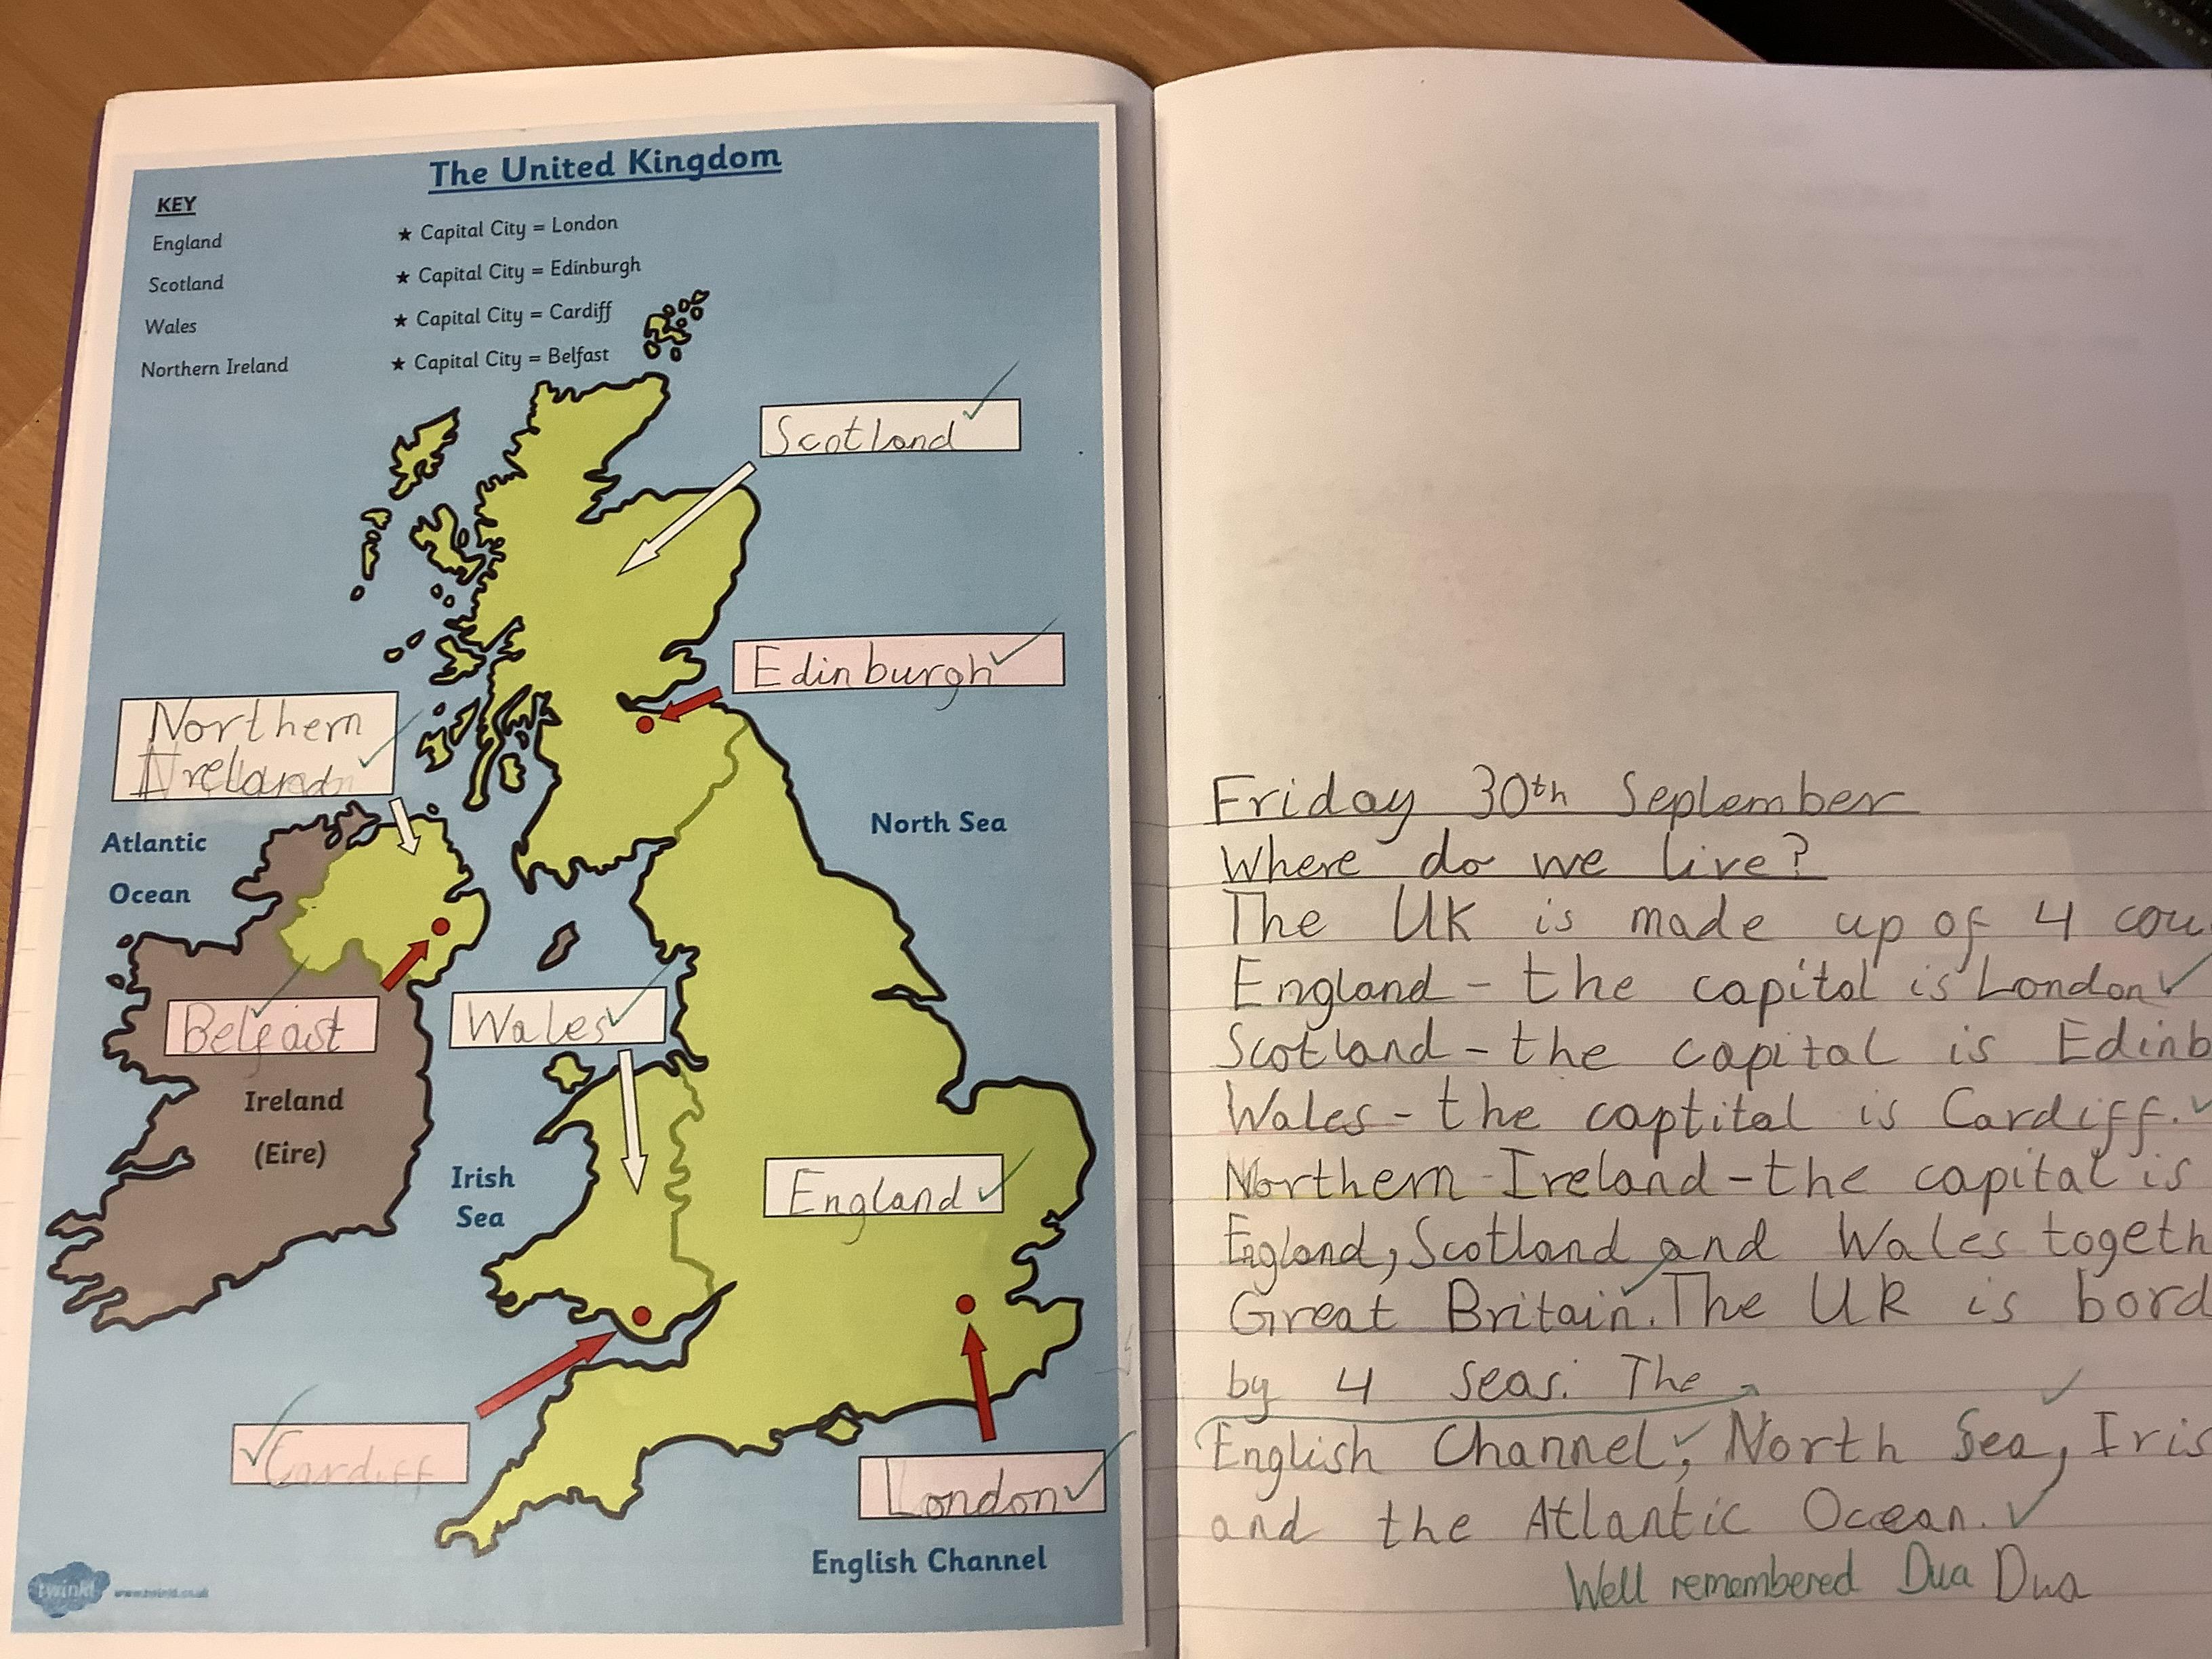 The United Kingdom
KEY
England ★ Capital City = London
Scotland ★ Capital City = Edinburgh
Wales ★ Capital City = Cardiff
Northern Ireland ★ Capital City = Belfast
Scotland
Edinburgh
Northern
Ireland
North Sea
Atlantic
Ocean
Belfast
Wales
Ireland
(Eire)
Irish
Sea
England
Cardiff
London
English Channel
twinkl www.twinkl.co.uk
Friday 30th September
Where do we live?
The UK is made up of 4 cou
England - the capital is London
Scotland - the capital is Edinb
Wales - the captital is Cardiff.
Northern Ireland - the capital is
England, Scotland and Wales togeth
Great Britain. The UK is bord
by 4 seas. The
English Channel, North Sea, Iris
and the Atlantic Ocean.
Well remembered Dua Dua